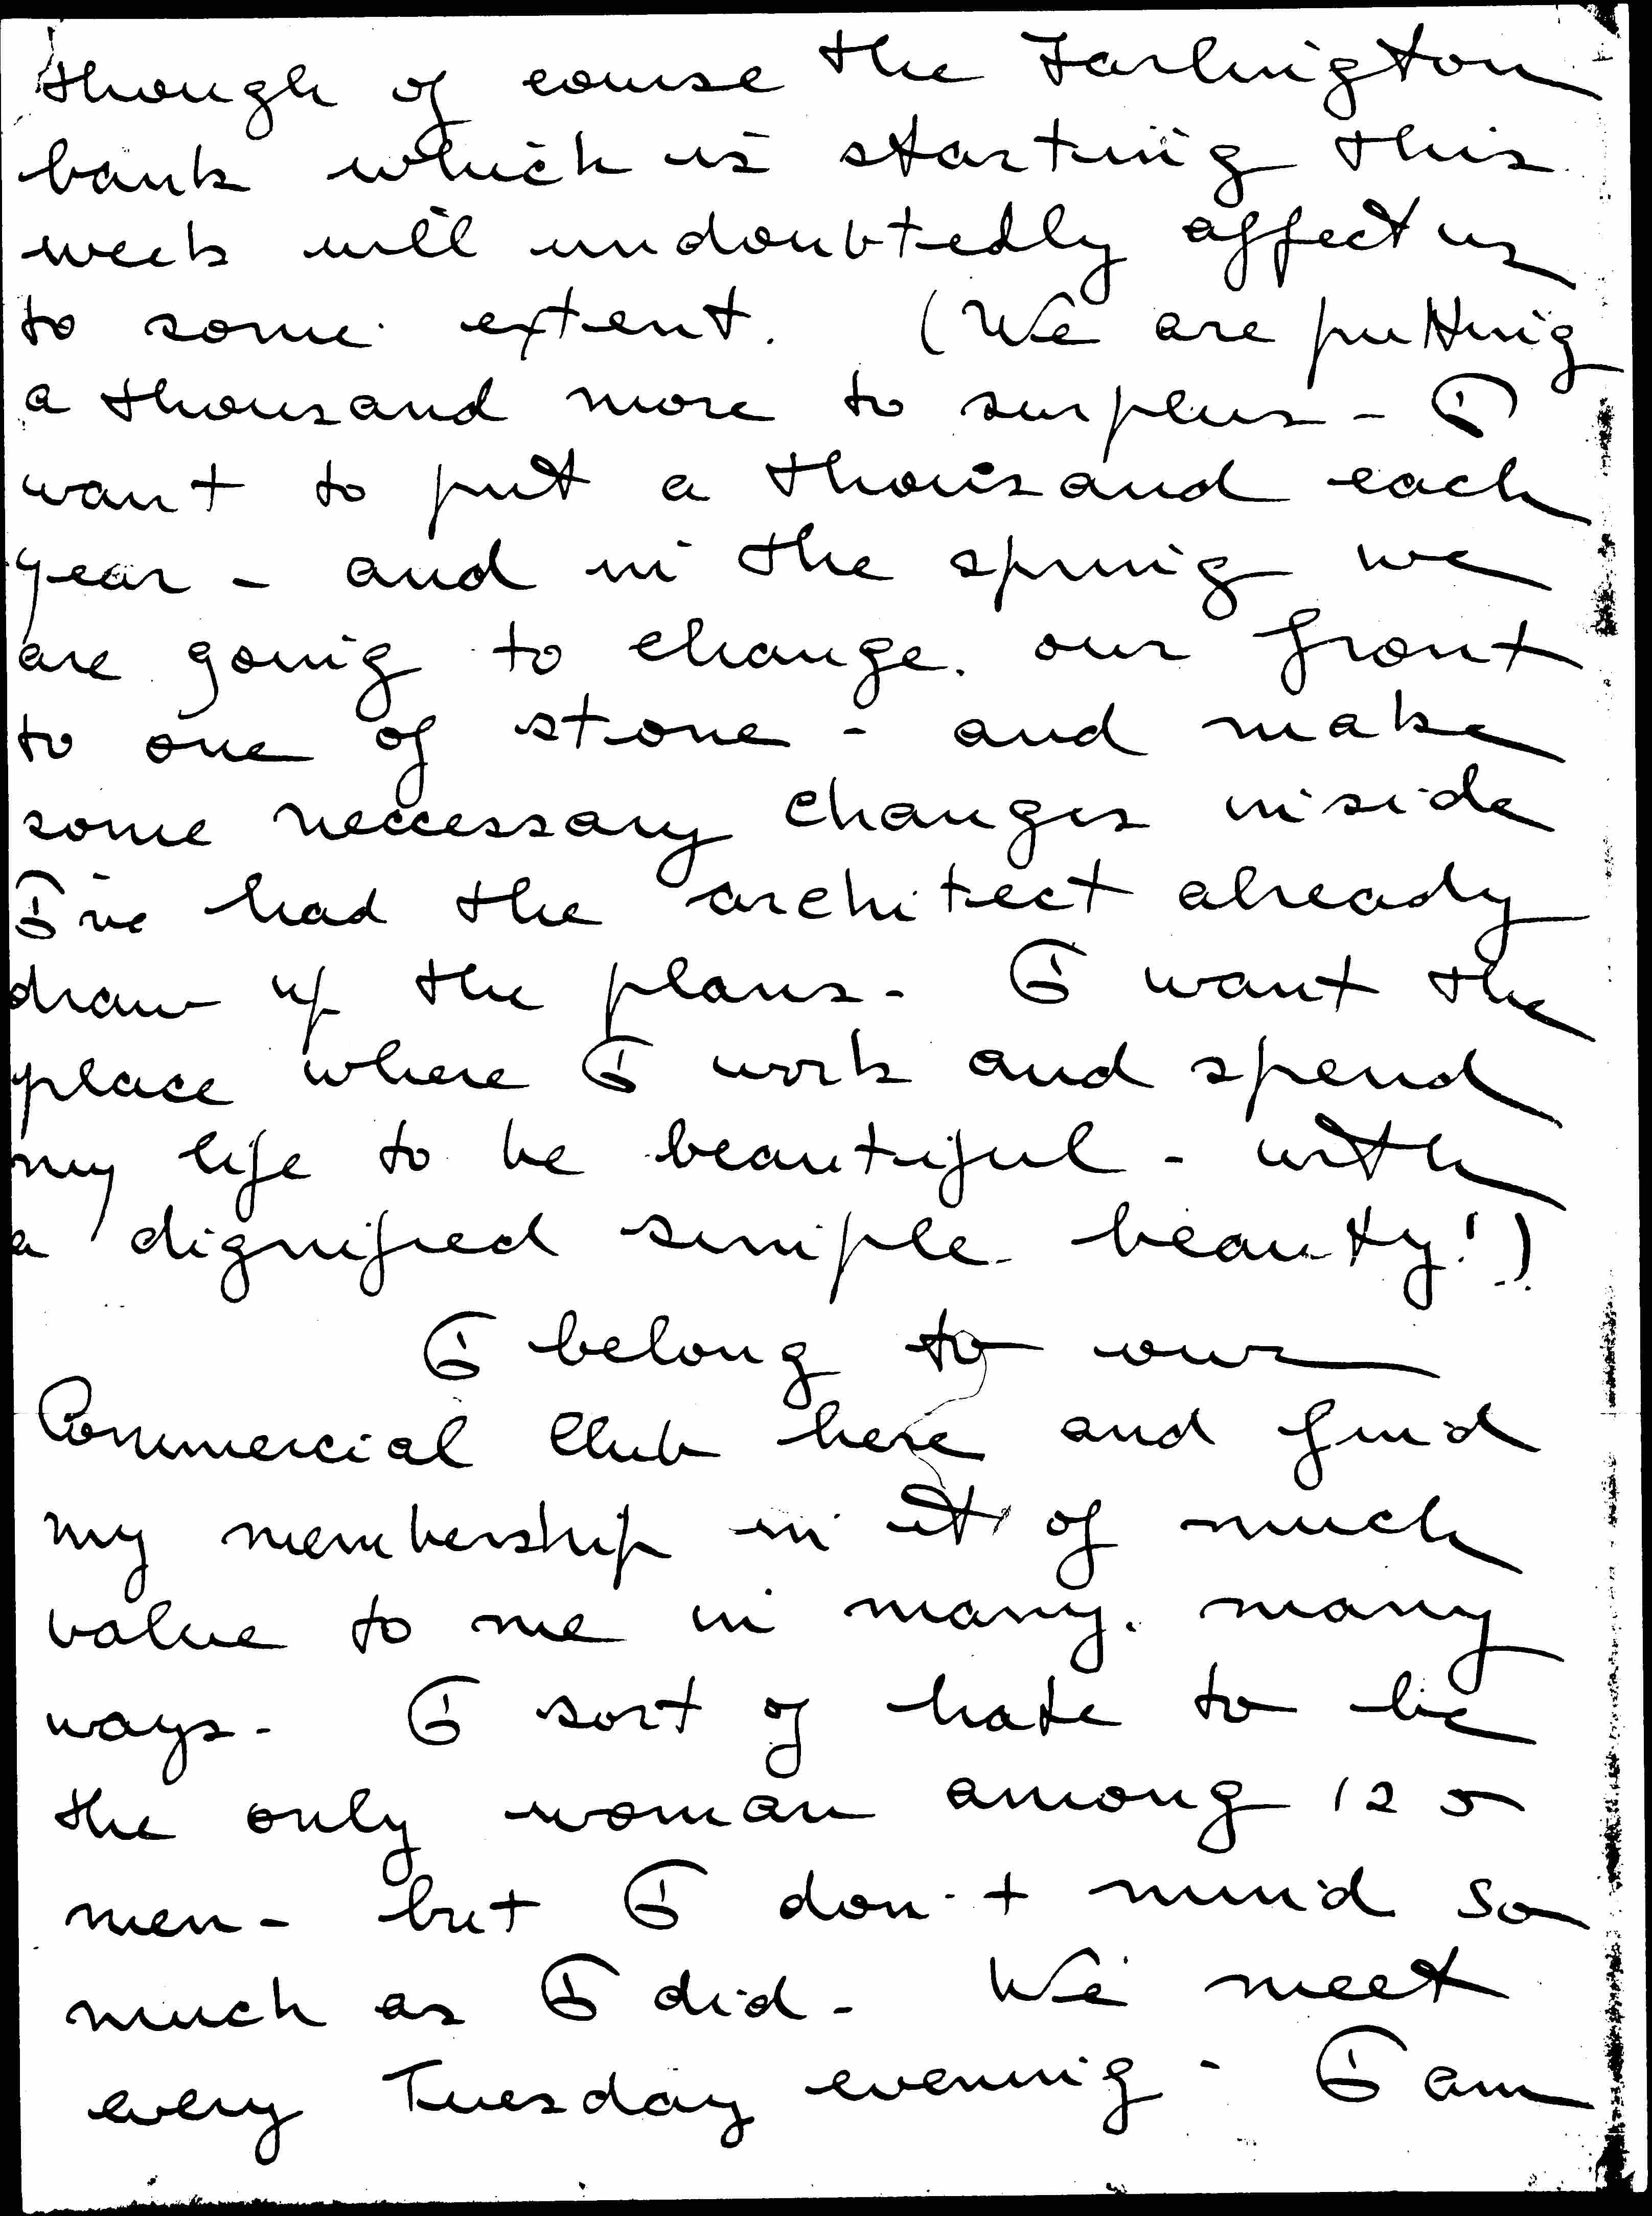 though of course the Farlington
bank which is starting this
week will undoubtedly affect us
to some extent. (We are putting
a thousand more to surplus - I
want to put a thousand each
year - and in the spring we
are going to change our front
to one of stone - and make
some neccessary changes inside
I've had the architect already
draw up the plans - I want the
place where I work and spend
my life to be beautiful - with
a dignified simple beauty!)
I belong to our
Commercial Club here and find
my membership in it of much
value to me in many, many
ways - I sort of hate to be
the only woman among 125
men - but I don't mind so
much as I did - We meet
every Tuesday evening - I am